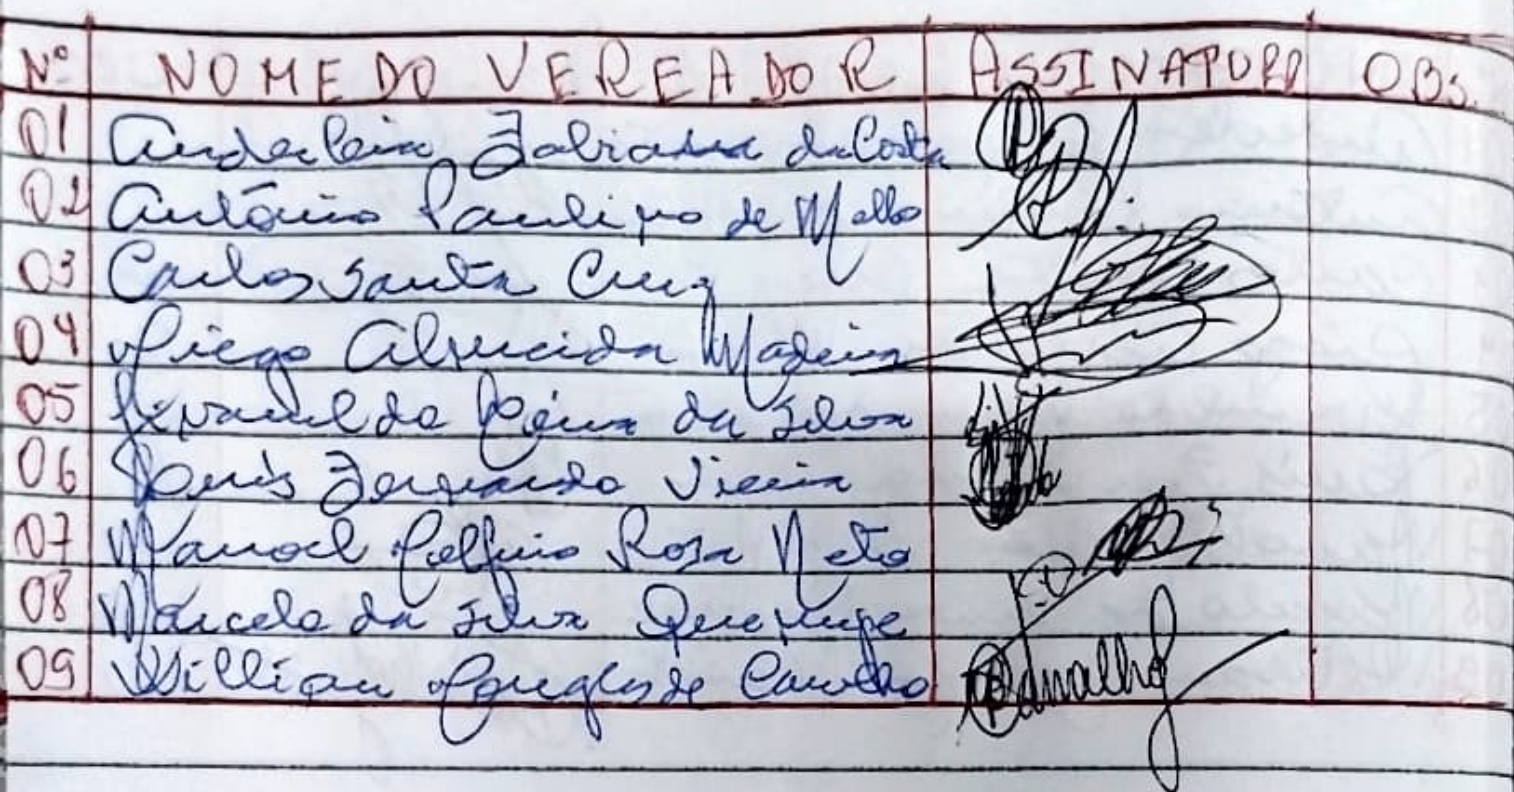 Nº NOME DO VEREADOR ASSINATURA OBS.
01 Anderleia Fabiana da Costa
02 Antônio Paulino de Mello
03 Carlos Santa Cruz
04 Diego Almeida Madeira
05 da Silva
06 Denis Fernando Vieira
07 Manoel Rosa Neto
08 Marcelo da Silva
09 Willian Douglas de Carvalho Carvalho